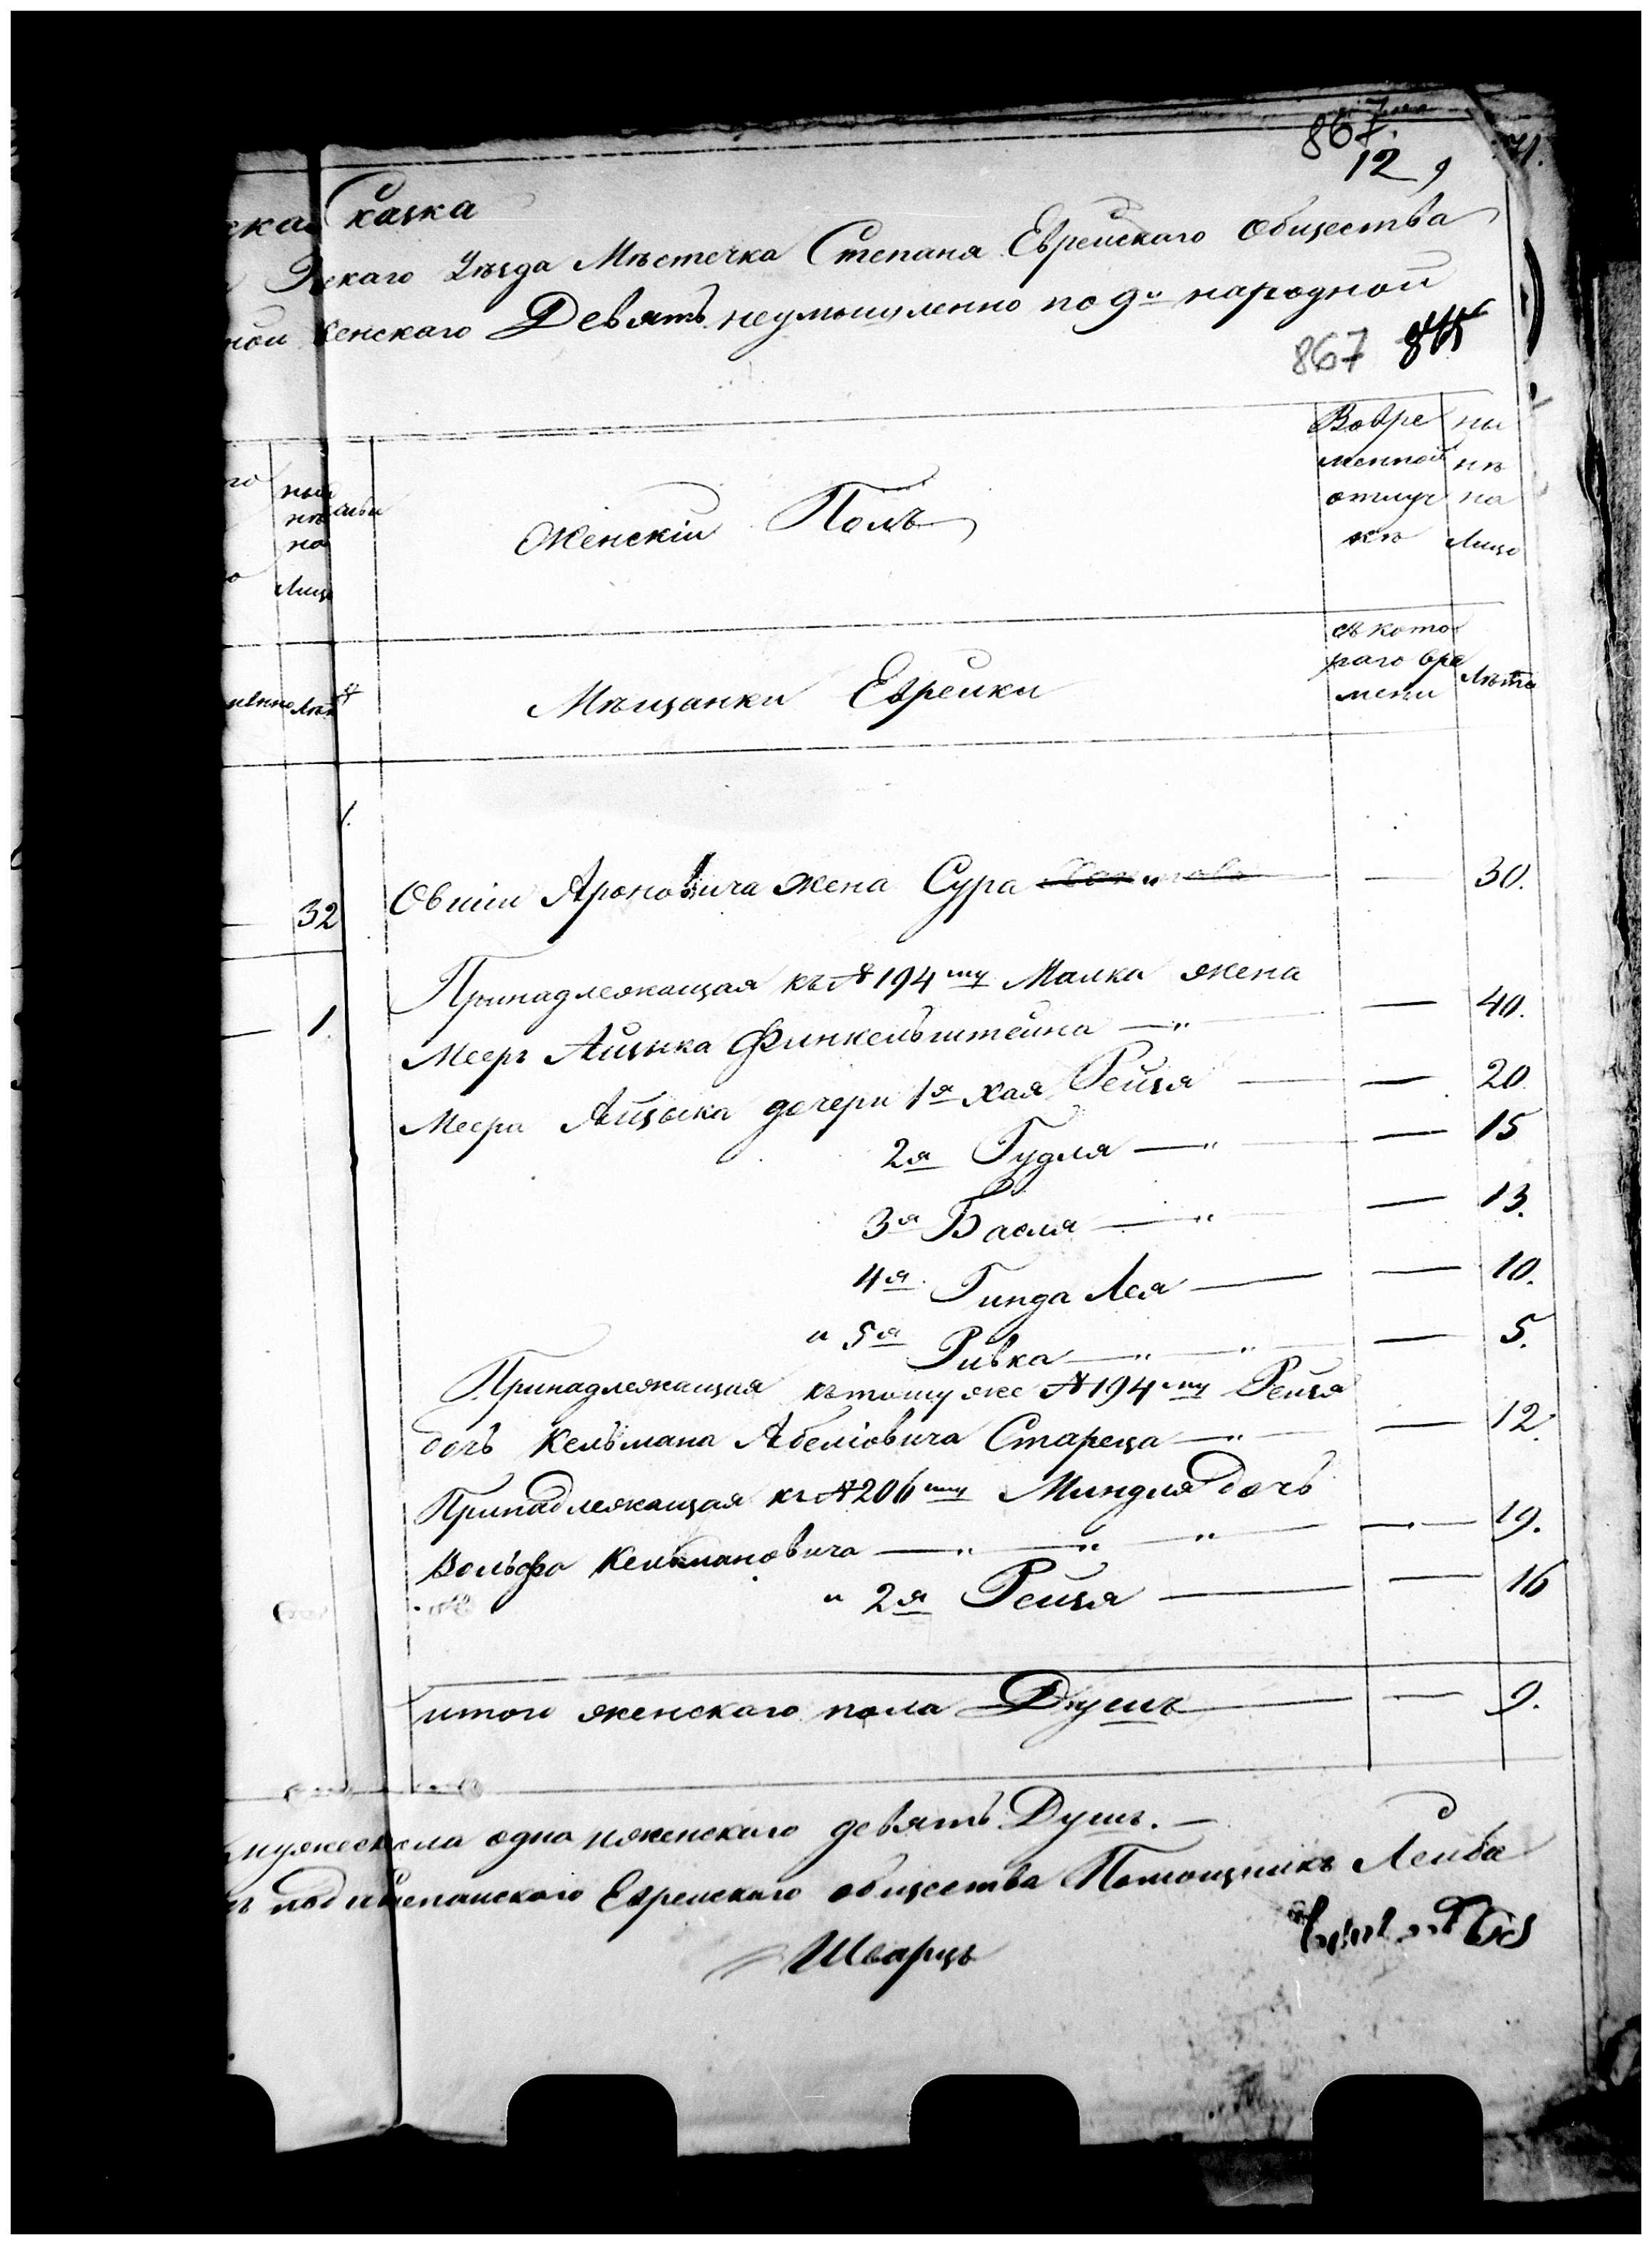 867.
12
71.
ска Сказка
скаго Уѣзда Мѣстечка Степаня Еврейскаго Общества
ной женскаго Девять неумышленно по 9й народной
867
Вовре ны
менной нѣ
отлуч на
кѣ Лицо
ны
нѣ
на
Лицо
Женскій Полъ
съ кото
раго вре Лѣта
мени
Мѣщанки Еврейки
1.
32 Овшіи Ароновича жена Сура — 30.
Принадлежащая къ № 194му Малка жена
1. Меера Айзыка Финкельштейна — 40.
Меера Айзыка дочери 1я Хая Рейзя — 20
2я Гудля — 15
3я Бася — 13.
4я Гинда Лея — 10.
и 5я Ривка — 5.
Принадлежащая къ тому же № 194му Рейзя
дочь Кельмана Абеліовича Стареца — 12.
Принадлежащая къ № 206му Миндля дочь
Вольфа Кельмановича — 19.
и 2я Рейзя — 16
итого женскаго пола Душъ — 9.
мужеска пола одна и женскаго девять Душъ.
Степанскаго Еврейскаго общества Помощникъ Лейба
Шварцъ